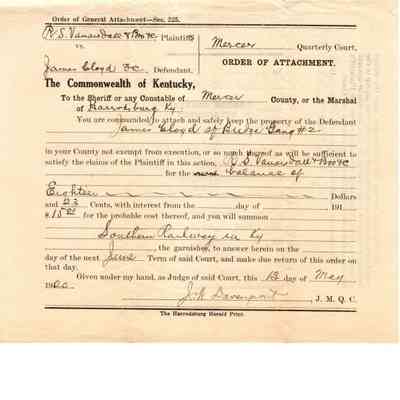 Order of General Attachment—Sec. 225.
R. S. Vanarsdall & Bro &c Plaintiffs
vs.
Mercer Quarterly Court,
James Cloyd &c Defendant.
ORDER OF ATTACHMENT.
The Commonwealth of Kentucky,
To the Sheriff or any Constable of Mercer County, or the Marshal
of Harrodsburg Ky
You are commanded to attach and safely keep the property of the Defendant
James Cloyd of Bridge Gang #2
in your County not exempt from execution, or so much thereof as will be sufficient to
satisfy the claims of the Plaintiff in this action, R. S. Vanarsdall & Bro &c
for the balance of
Eighteen Dollars
and 23 Cents, with interest from the day of 191
$ for the probable cost thereof, and you will summon
Southern Railway in Ky
the garnishee, to answer herein on the
day of the next June Term of said Court, and make due return of this order on
that day.
Given under my hand, as Judge of said Court, this day of May
J. W. Davenport, J. M. Q. C.
The Harrodsburg Herald Print.